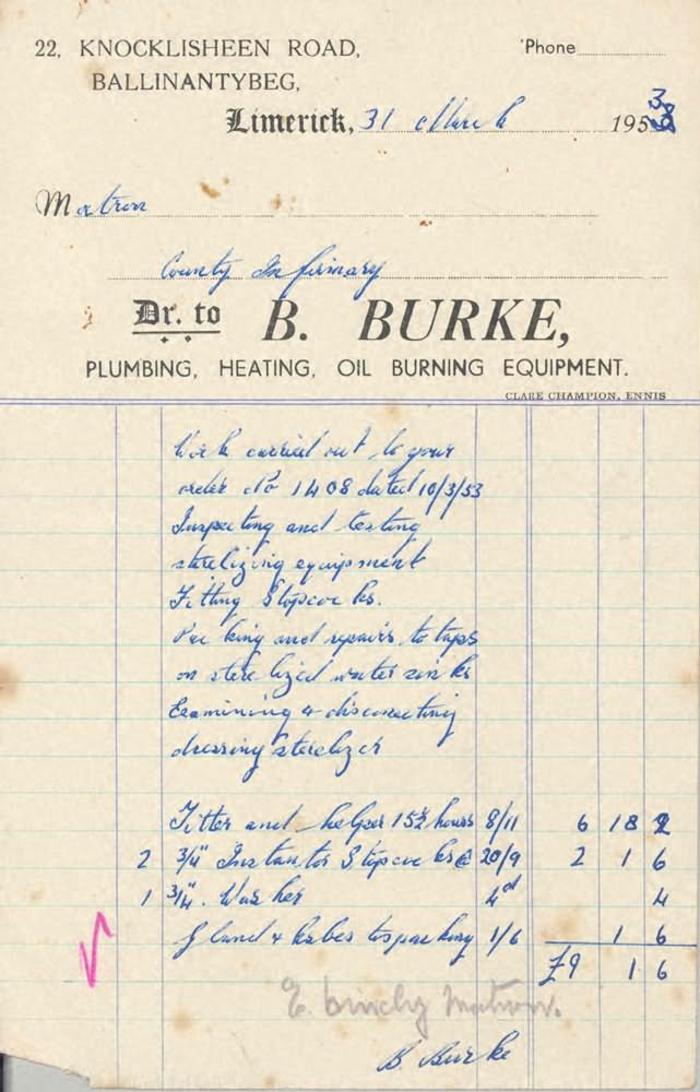 22, KNOCKLISHEEN ROAD,
'Phone
BALLINANTYBEG,
Limerick, 31 March 1953
Matron
County Infirmary
Dr. to B. BURKE,
PLUMBING, HEATING, OIL BURNING EQUIPMENT.
CLARE CHAMPION, ENNIS
Work carried out to your
order No 1408 dated 10/3/53
Inspecting and testing
sterilizing equipment
Fitting Stopcocks.
Packing and repairs to taps
on sterelized water sinks
Examining & disconecting
dressing sterelizer
Fitter and helper 15½ hours 8/11 6 18 2
2 3/4" Instantor Stopcocks @ 20/9 2 1 6
1 3/4". Washer 4d 4
Gland & packing 1/6 1 6
£9 1 6
E. Binchy Matron.
B. Burke